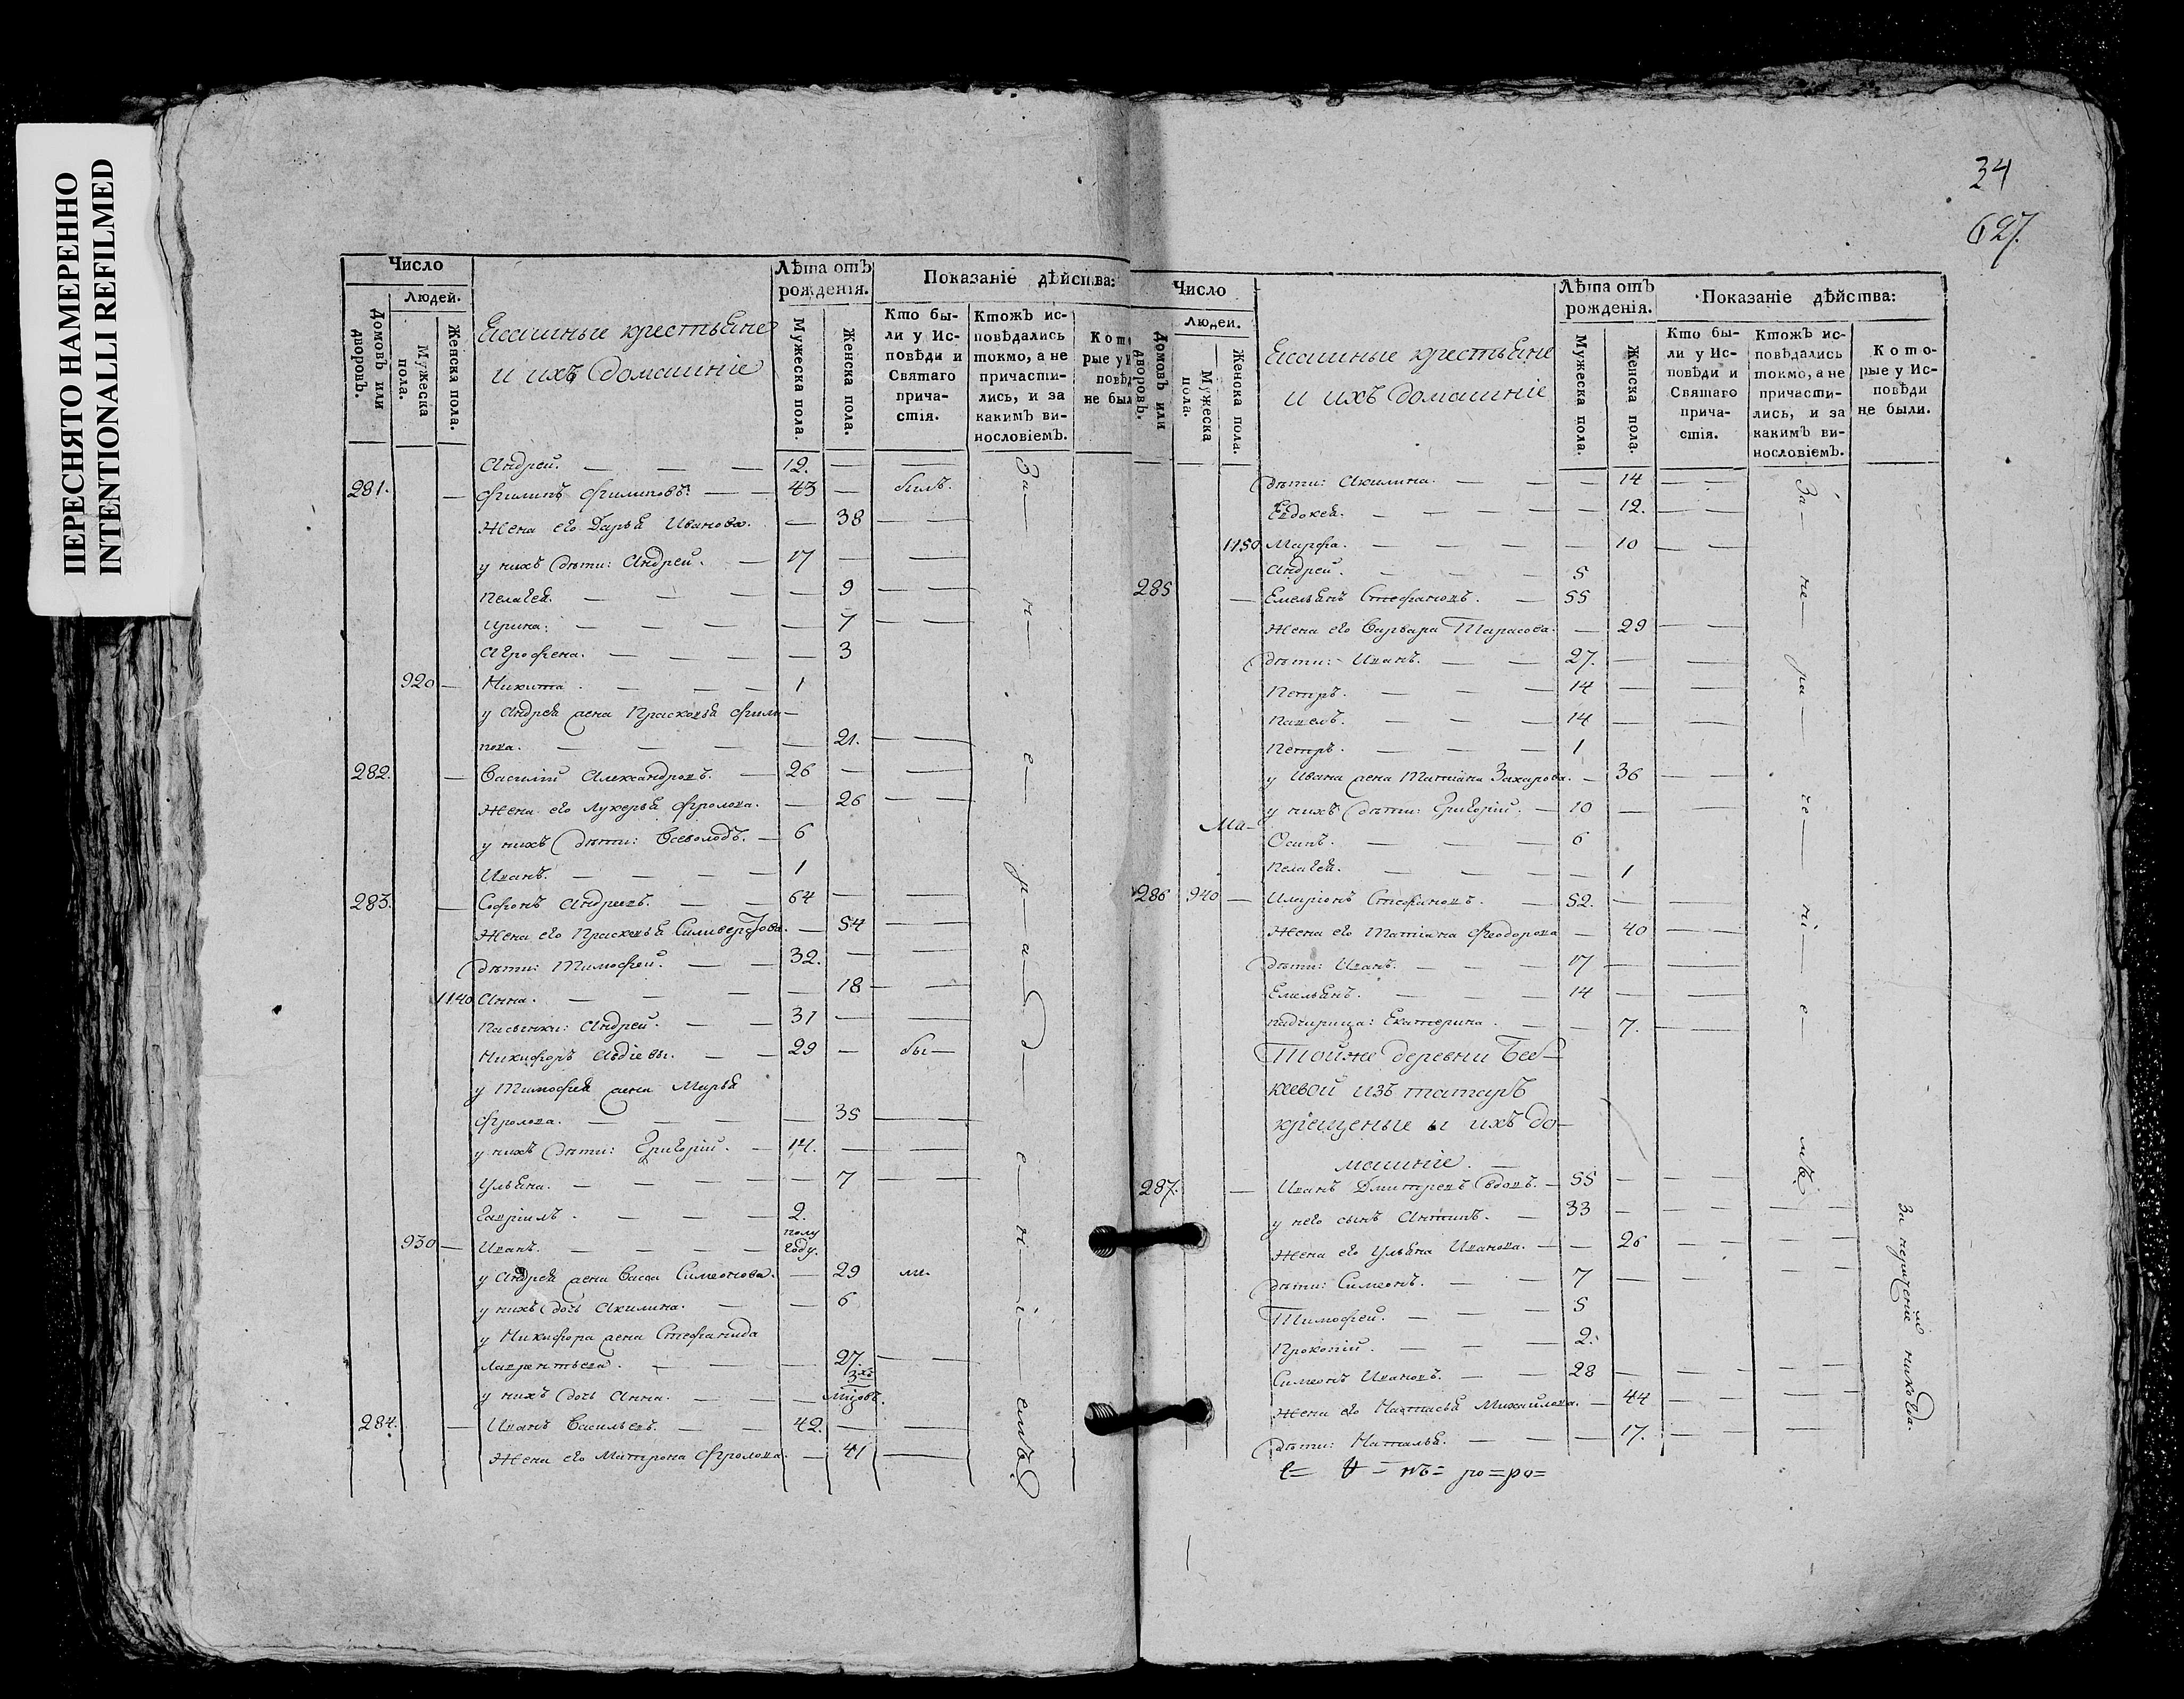 ПЕРЕСНЯТО НАМЕРЕННО
INTENTIONALLI REFILMED
Число
Людей.
Домовъ или дворовъ.
Мужеска пола.
Женска пола.
Ясашные крестьяне
и ихъ домашніе
Лѣта отъ рожденія.
Мужеска пола.
Женска пола.
Показаніе дѣйства:
Кто были у Исповѣди и Святаго причастія.
Ктожъ исповѣдались токмо, а не причастились, и за какимъ винословіемъ.
Андрей. — — — 12. — —
281. — Филипъ Филиповъ. — — 43 — былъ.
Жена его Дарья Иванова. — 38 — —
у нихъ дѣти: Андрей. — 17 — —
Пелагея. — — — — 9 — —
Ирина. — — — — 7 — —
Агрофена. — — — — 3
920 — Никита. — — — 1
у Андрея жена Прасковья Фили-
пова. — — — — 21. — —
282. — Василий Александровъ. — 26 — —
Жена его Лукерья Фролова. — 26 — —
у нихъ дѣти: Всеволодъ. — 6
Иванъ. — — — — 1
283. — Софонъ Андреевъ. — — 64 — —
Жена его Прасковья Силиверстова. — 54 — —
дѣти: Тимофей. — — 32. — —
1140 Анна. — — — — 18 — —
Пасынки: Андрей. — — 31 — —
Никифоръ Авдіевы. — — 29 — бы—
у Тимофея жена Марья
Фролова. — — — — 35 — —
у нихъ дѣти: Григорій. — 14. — —
Ульяна. — — — — 7 — —
Гавріилъ. — — — 2.
930 — Иванъ. — — — — полу году.
у Андрея жена Васса Симеонова. — 29 ли.
у нихъ дочь Акилина. — — 6
у Никифора жена Стефанида
Лаврентьева. — — — 27. — —
у нихъ дочь Анна. — — — 3хъ мцовъ.
284. — Иванъ Васильевъ. — — 42. — —
Жена его Матрона Фролова. — 41 —
За— н— е— р—а—д— е—н—і— емъ
34
627.
Число
Людей.
Домовъ или дворовъ.
Мужеска пола.
Женска пола.
Ясашные крестьяне
и ихъ домашніе
Лѣта отъ рожденія.
Мужеска пола.
Женска пола.
Показаніе дѣйства:
Кто были у Исповѣди и Святаго причастія.
Ктожъ исповѣдались токмо, а не причастились, и за какимъ винословіемъ.
Которые у Исповѣди не были.
дѣти: Акилина. — — — 14 — —
Евдокея. — — — — 12. — —
1150 Марфа. — — — — 10 — —
Андрей. — — — 5
285 — Емельянъ Стефановъ. — 55
Жена его Варвара Тарасова. — 29 — —
дѣти: Иванъ. — — 27. — —
Петръ. — — — 14 — —
Павелъ. — — — 14 — —
Петръ. — — — 1
у Ивана жена Татіана Захарова. — 36 — —
у нихъ дѣти: Григорій. — 10 — —
Осипъ. — — — 6
Пелагея. — — — — 1
286 940 — Иларіонъ Стефановъ. — 52. — —
Жена его Татіана Феодорова — 40 — —
дѣти: Иванъ. — — — 17 — —
Емельянъ. — — — 14 — —
падчирица: Екатерина. — — 7. — —
Тойже деревни Бе
кеевой изъ татаръ
крещеные и ихъ до—
машніе. —
287. — Иванъ Дмитревъ вдовъ. — 55 — — —
у него сынъ Антипъ. — 33 — — —
Жена его Ульяна Иванова. — — 26 — — —
дѣти: Симеонъ. — — 7 — — —
Тимофей. — — — 5
Прокопій. — — — 2.
Симеонъ Ивановъ. — — 28 — — —
Жена его Настасья Михайлова. — 44 — — —
дѣти: Наталья. — — — 17. — — —
За нераченіе никогда.